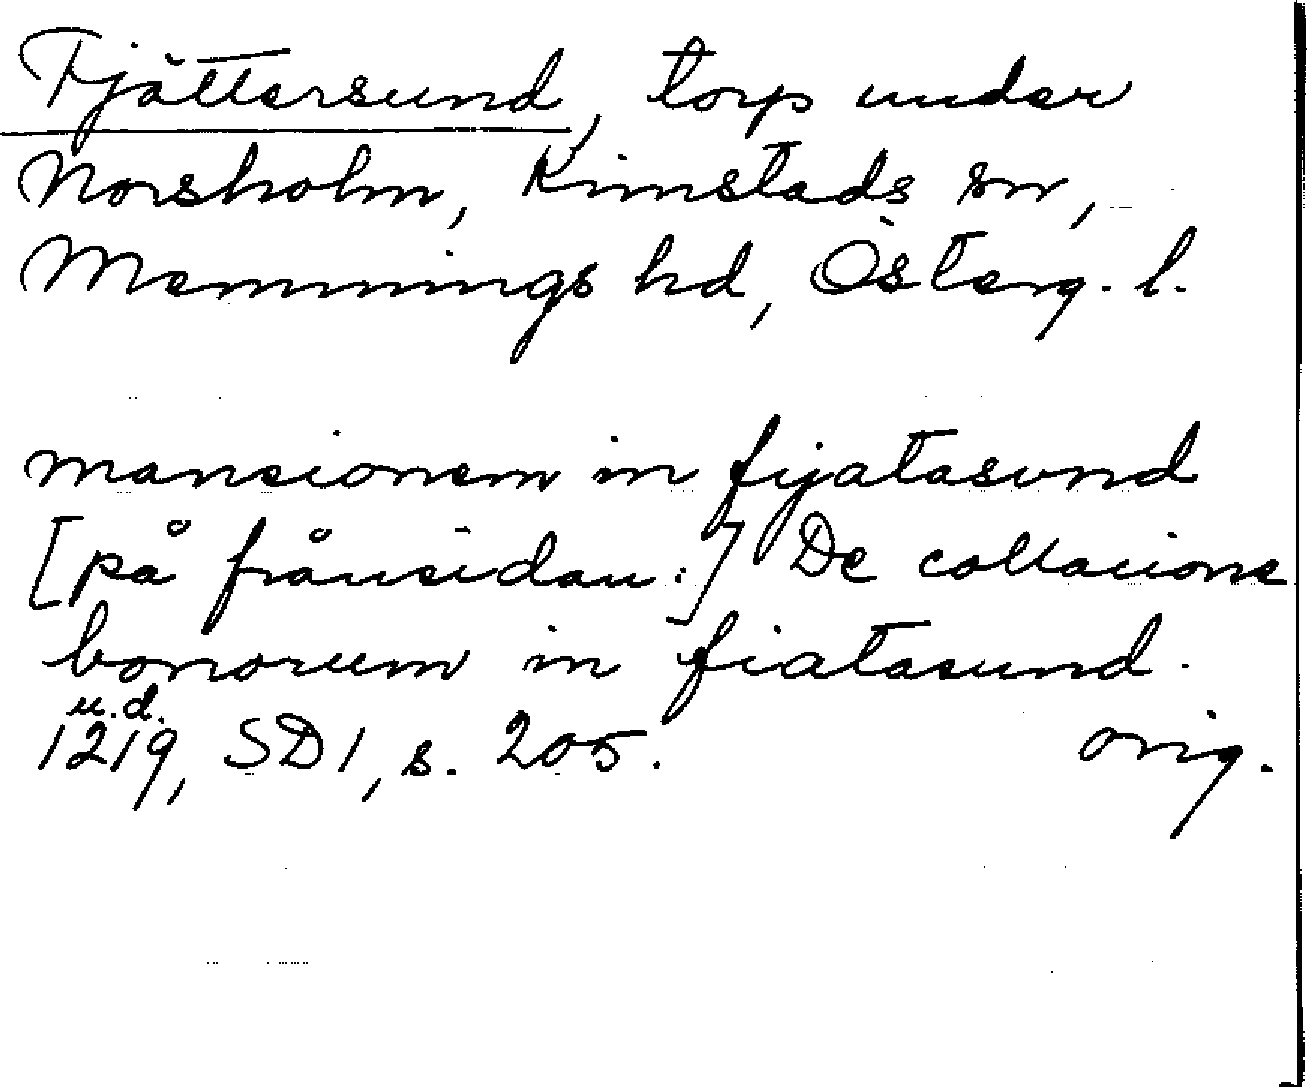 Fjättersund, torp under
Norsholm, Kimstads sn,
Memmings hd, Österg. l.
mansionem in fijatasund
[på frånsidan:] De collacione
bonorum in fiatasund.
u.d.
1219, SD1, s. 205. orig.